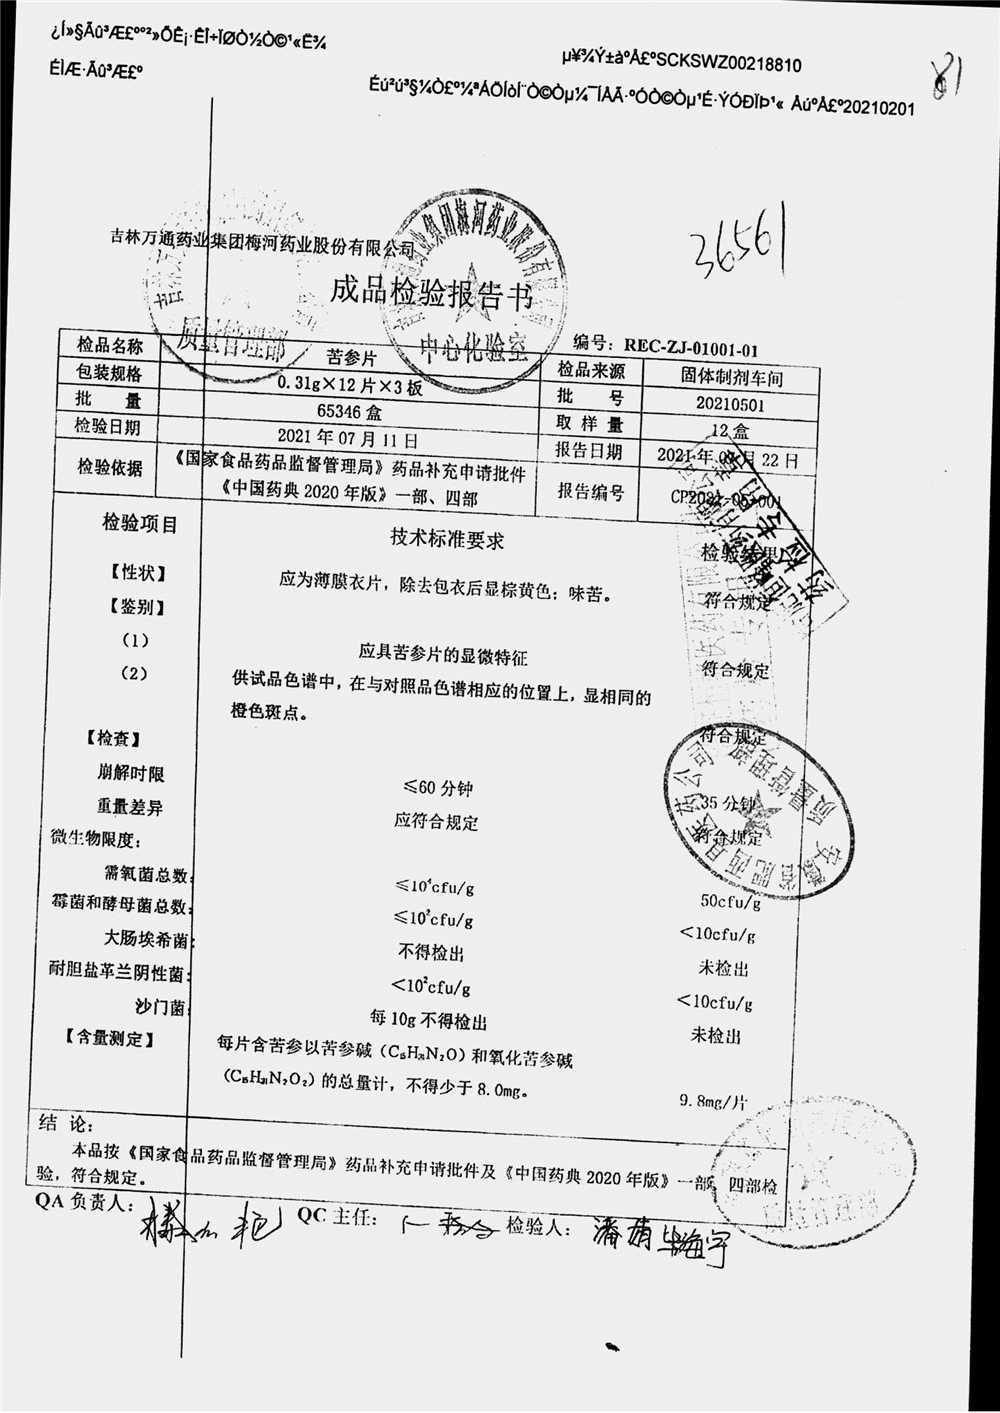 ¿Í»§Ãû³Æ£º°²»ÕÊ¡·ÊÎ÷ÏØÒ½Ò©¹«Ë¾
µ¥¾Ý±àºÅ£ºSCKSWZ00218810
81
ÉÌÆ·Ãû³Æ£º
Éú²ú³§¼Ò£º¼ªÁÖÍòÍ¨Ò©Òµ¼¯ÍÅÃ·ºÓÒ©Òµ¹É·ÝÓÐÏÞ¹« Åúº Å£º20210201
36561
吉林万通药业集团梅河药业股份有限公司
成品检验报告书
质量管理部
中心化验室
编号：REC-ZJ-01001-01
检品名称 苦参片 检品来源 固体制剂车间
包装规格 0.31g×12片×3板 批号 20210501
批量 65346盒 取样量 12盒
检验日期 2021年07月11日 报告日期 2021年 月22日
检验依据 《国家食品药品监督管理局》药品补充申请批件
《中国药典2020年版》一部、四部 报告编号
检验项目 技术标准要求 检验结果
【性状】 应为薄膜衣片，除去包衣后显棕黄色；味苦。 符合规定
【鉴别】
（1） 应具苦参片的显微特征 符合规定
（2） 供试品色谱中，在与对照品色谱相应的位置上，显相同的
橙色斑点。 符合规定
【检查】
崩解时限 ≤60分钟 35分钟
重量差异 应符合规定 符合规定
微生物限度：
需氧菌总数： ≤10⁴cfu/g 50cfu/g
霉菌和酵母菌总数： ≤10²cfu/g <10cfu/g
大肠埃希菌： 不得检出 未检出
耐胆盐革兰阴性菌： <10²cfu/g <10cfu/g
沙门菌： 每10g不得检出 未检出
【含量测定】 每片含苦参以苦参碱（C₁₅H₂₄N₂O）和氧化苦参碱
（C₁₅H₂₄N₂O₂）的总量计，不得少于8.0mg。 9.8mg/片
结 论：
本品按《国家食品药品监督管理局》药品补充申请批件及《中国药典2020年版》一部、四部检
验，符合规定。
QA负责人： QC主任： 检验人：
安徽省肥西县医药公司
质量管理部